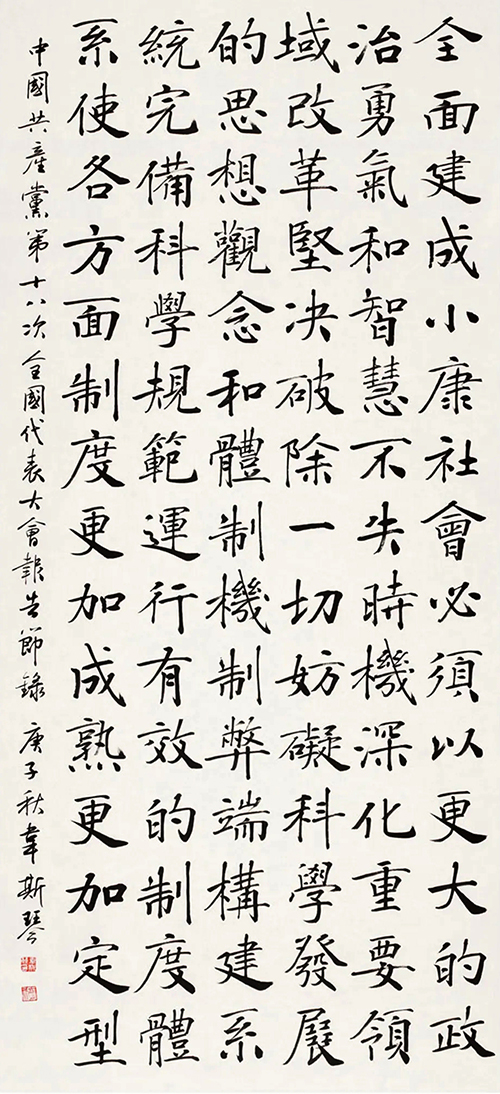 全面建成小康社會必須以更大的政
治勇氣和智慧不失時機深化重要領
域改革堅决破除一切妨礙科學發展
的思想觀念和體制機制弊端構建系
統完備科學規範運行有效的制度體
系使各方面制度更加成熟更加定型
中國共產黨第十八次全國代表大會報告節錄 庚子秋韋斯琴